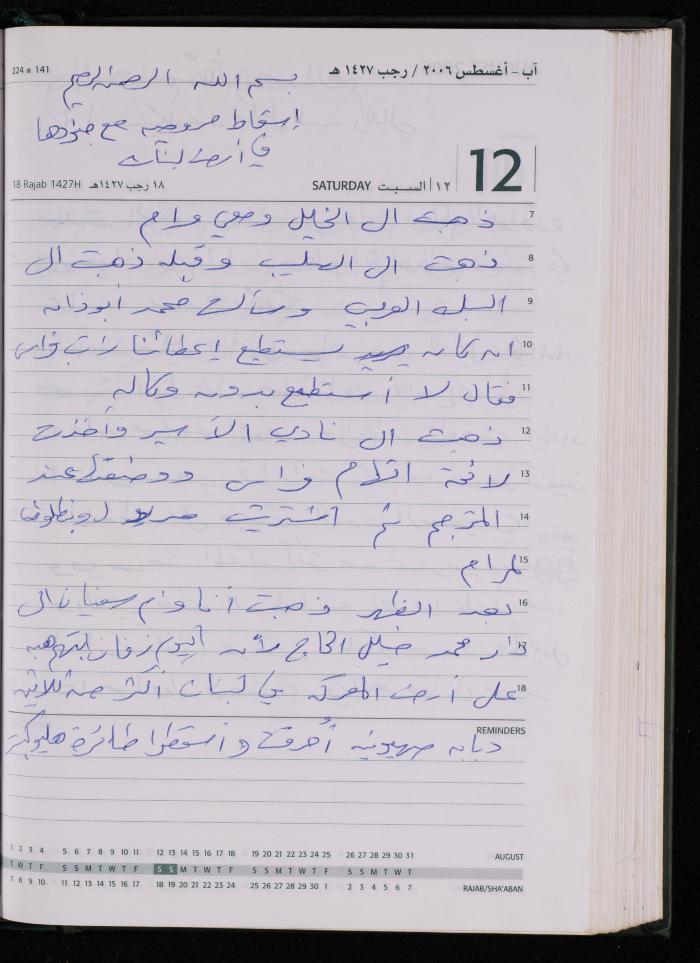 224 ■ 141
آب - أغسطس ٢٠٠٦ / رجب ١٤٢٧ هـ
بسم الله الرحمن الرحيم
إسقاط مروحيه مع جنودها
في أرض لبنان
12
18 Rajab 1427H ١٨ رجب ١٤٢٧هـ SATURDAY السبت ١٢
7 ذهبت الى الخليل ومعي مرام
8 ذهبت الى الصليب وقبله ذهبت الى
9 البنك العربي وسألت محمد أبو
10 انه كان يستطيع إعطائنا راتب فراس
11 فقال لا أستطيع بدون وكاله
12 ذهبت الى نادي الأسير وأخذت
13 لائحة اتهام فراس ووضعتها عند
14 المترجم ثم اشتريت
15 لمرام
16 بعد الظهر ذهبت أنا وأم سفيان الى
17 دار محمد خليل الحاج لأن اليوم زفاف
18 على أرض المعركه في لبنان أكثر من ثلاثين
REMINDERS
دبابه صهيونيه أُحرقت وأسقطوا طائرة هليوكبتر
1 2 3 4 5 6 7 8 9 10 11 12 13 14 15 16 17 18 19 20 21 22 23 24 25 26 27 28 29 30 31 AUGUST
T W T F S S M T W T F S S M T W T F S S M T W T F S S M T W T
7 8 9 10 11 12 13 14 15 16 17 18 19 20 21 22 23 24 25 26 27 28 29 30 1 2 3 4 5 6 7 RAJAB/SHA'ABAN